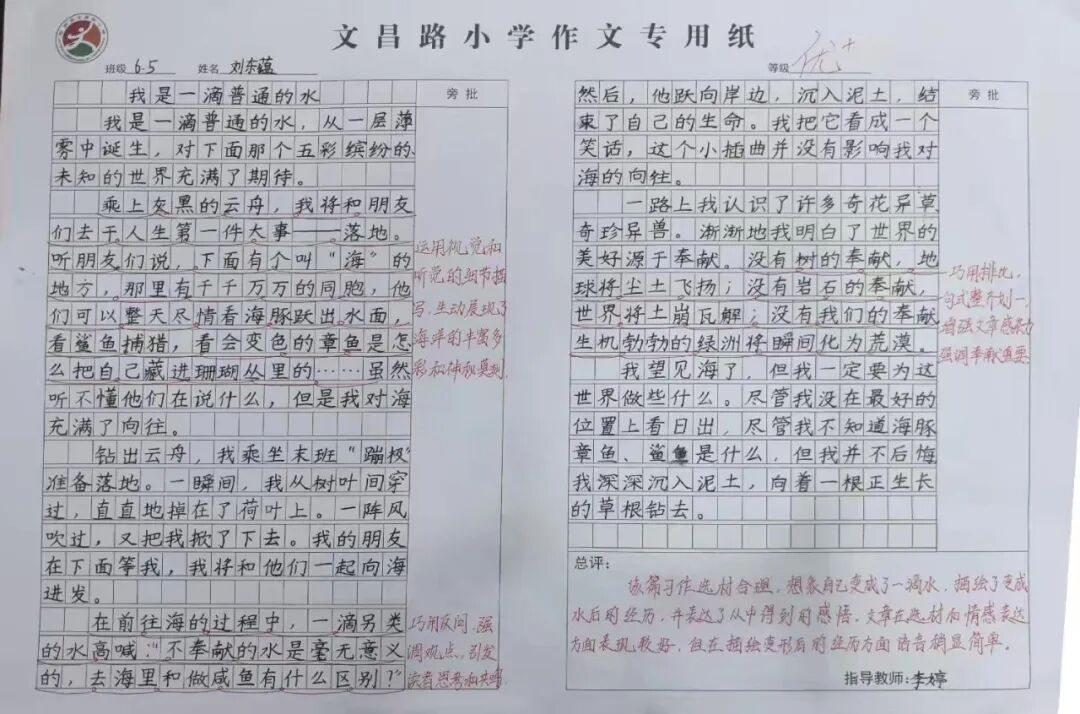 文昌路小学作文专用纸
班级 6.5 姓名 刘东蕴
等级 优+
我是一滴普通的水
旁批
我是一滴普通的水，从一层薄
雾中诞生，对下面那个五彩缤纷的
未知的世界充满了期待。
乘上灰黑的云舟，我将和朋友
们去干人生第一件大事——落地。
听朋友们说，下面有个叫“海”的
地方，那里有千千万万的同胞，他
们可以整天尽情看海豚跃出水面，
看鲨鱼捕猎，看会变色的章鱼是怎
么把自己藏进珊瑚丛里的……虽然
听不懂他们在说什么，但是我对海
充满了向往。
运用视觉和
听觉的细节描
写，生动展现了
海洋的丰富多
彩和神秘莫测
钻出云舟，我乘坐末班“蹦极”
准备落地。一瞬间，我从树叶间穿
过，直直地掉在了荷叶上。一阵风
吹过，又把我掀了下去。我的朋友
在下面等我，我将和他们一起向海
进发。
在前往海的过程中，一滴另类
的水高喊：“不奉献的水是毫无意义
的，去海里和做咸鱼有什么区别？”
巧用反问，强
调观点，引发
读者思考和共鸣
旁批
然后，他跃向岸边，沉入泥土，结
束了自己的生命。我把它看成一个
笑话，这个小插曲并没有影响我对
海的向往。
一路上我认识了许多奇花异草
奇珍异兽。渐渐地我明白了世界的
美好源于奉献。没有树的奉献，地
球将尘土飞扬；没有岩石的奉献，
世界将土崩瓦解；没有我们的奉献
生机勃勃的绿洲将瞬间化为荒漠。
巧用排比，
句式整齐划一，
增强文章感染力
强调奉献重要
我望见海了，但我一定要为这
世界做些什么。尽管我没在最好的
位置上看日出，尽管我不知道海豚
章鱼、鲨鱼是什么，但我并不后悔
我深深沉入泥土，向着一根正生长
的草根钻去。
总评：
该篇习作选材合理，想象自己变成了一滴水，描绘了变成
水后的经历，并表达了从中得到的感悟，文章在选材和情感表达
方面表现较好，但在描绘变形后的经历方面语言稍显简单。
指导教师：李婷